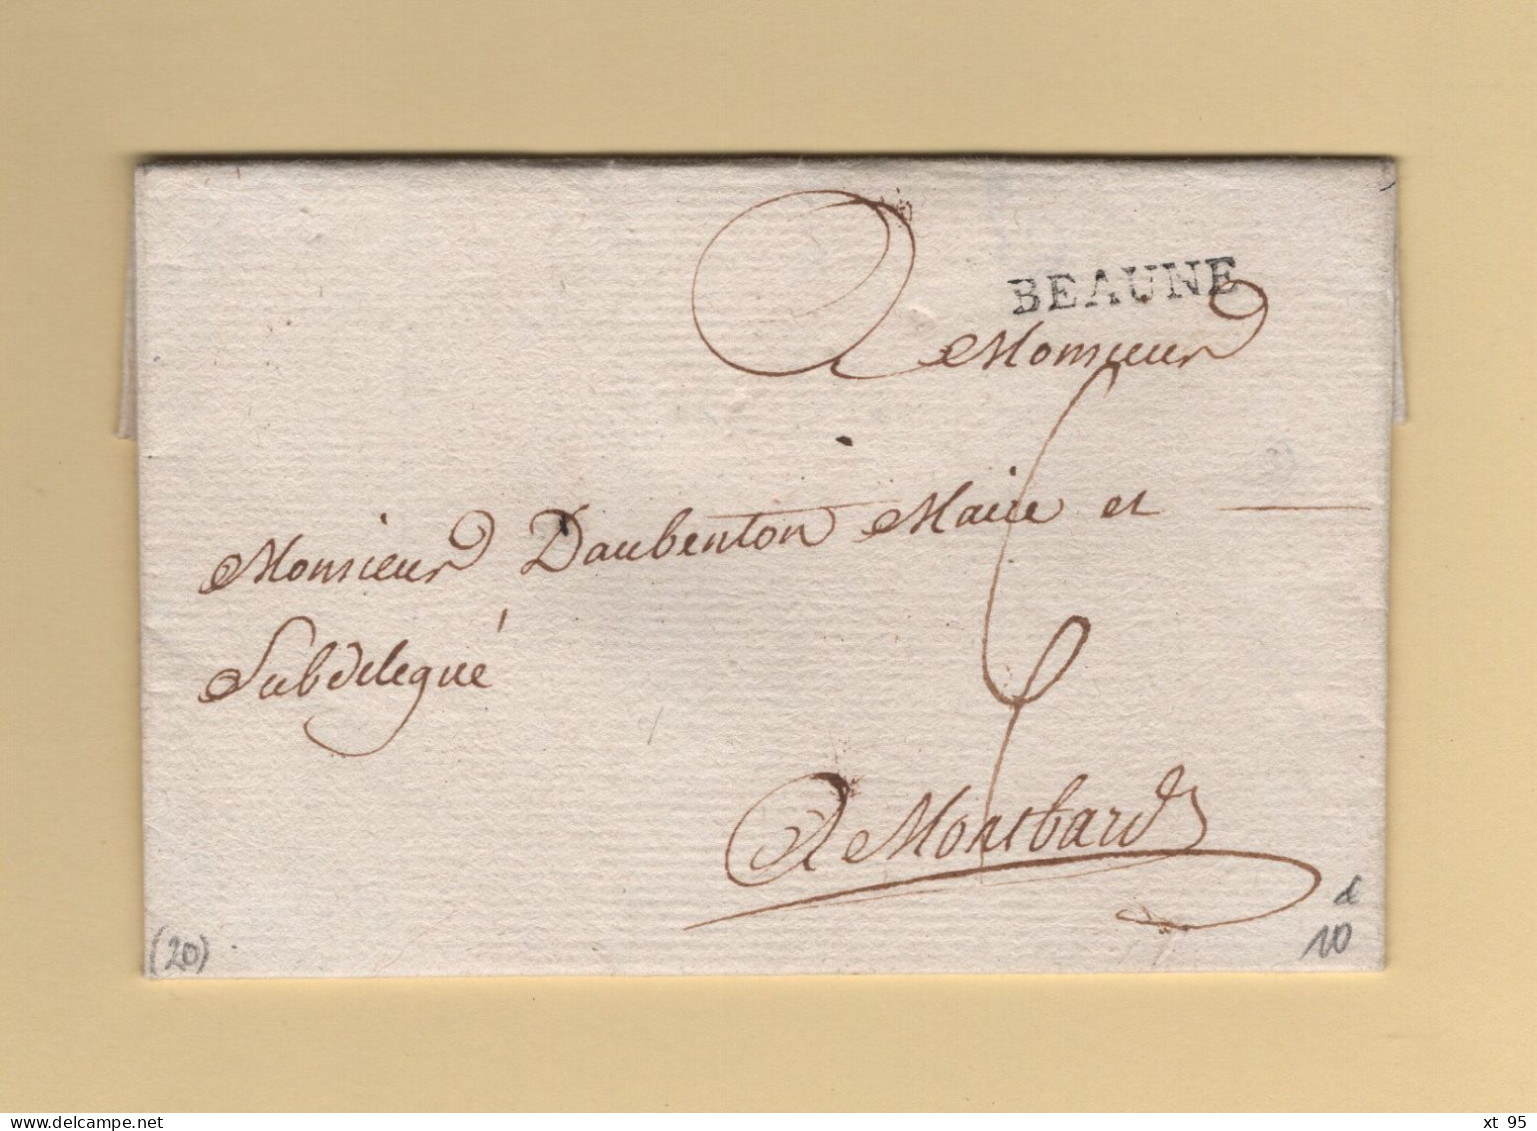 BEAUNE
A Monsieur
Monsieur Daubenton Maire et
Subdelegué
6
A Montbard
(20)
10
delcampe.net
xt_95